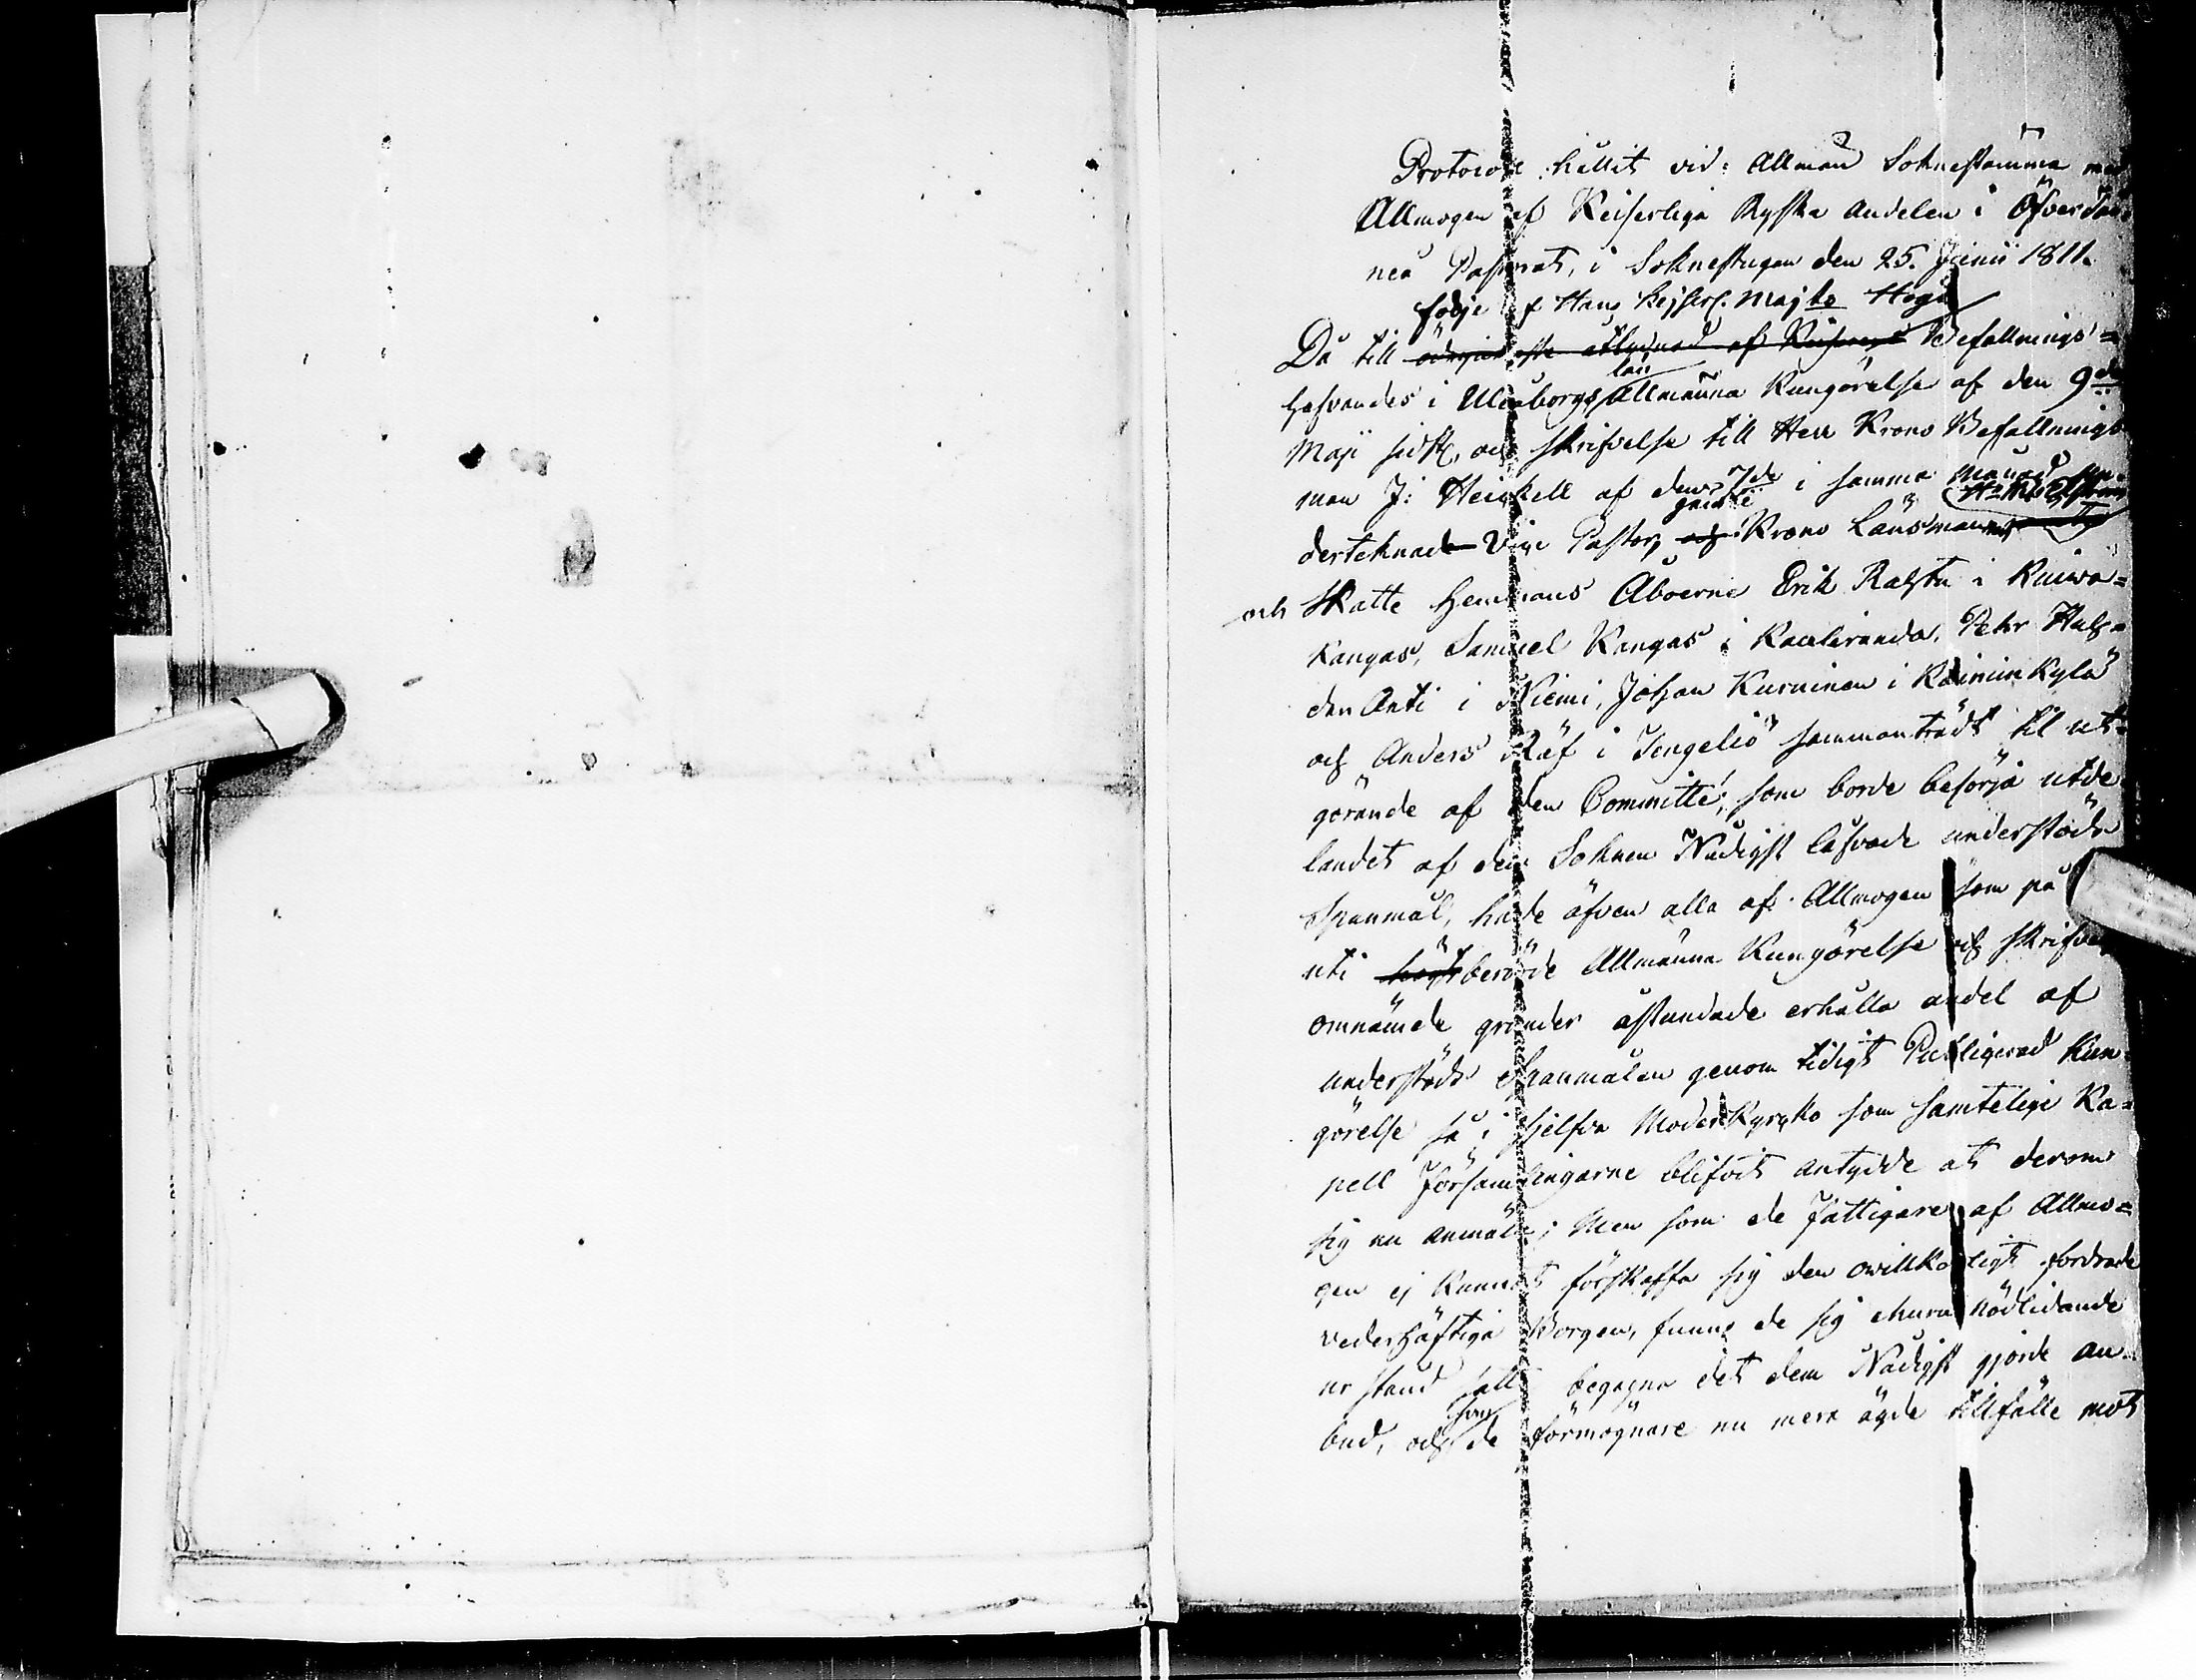 Protocoll hållit vid Allmän Soknestämma med
Allmogen af Keiserliga Ryska andelen i Öfvertår
neå Pastorat, i Soknestugan den 25. Junii 1811.
följe af Hans Kejserl. Majts Höga
Då till ödmjukaste åtlydnad af Keiserens Befallnings=
hafvandes i Uleåborgs län Allmänna Kungörelse af den 9de
Maji sidstl. och skrifvelse till Herr Krono Befallnings
man J: Heickell af den 7de i samma månad un
derteknade Vice Pastor, och Krono Länsmannen
och Skatte Hemmans Åboerne Erik Rahtu i Kuiva=
kangas, Samuel Kangas i Kauliranda, Pehr Hals=
den Anti i Niemi, Johan Kurninen i Kainunkylä
och Anders Räf i Tengeliö sammanträdt til ut=
görande af den Committé, som borde besörja utde
landet af den Soknen Nådigst lofvade understöds
Spanmål, hade äfven alla af Allmogen som på
uti högstberörde Allmänna Kungörelse och skrifvel
omnämde grunder åstundade erhålla andel af
understöds Spanmålen genom tidigt Publicerad Kun=
görelse så i sjelfva Moderkyrcko som samtelige Ka=
pell Församlingarne blifvit antydde at derom
sig nu anmäla; Men som de Fattigare af Allmo=
gen ej kunnat förskaffa sig den owillkorligt fordrade
vederhäftiga Borgen, funno de sig ehuru nödlidande
ur stånd satte begagna det dem Nådigst gjorde an=
bud, och som de förmögnare nu mera ägde tillfälle mot